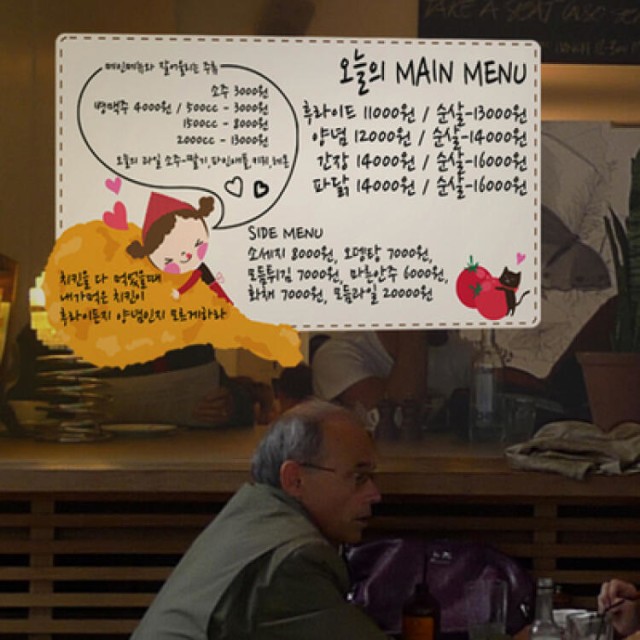 TAKE A SEAT
메인메뉴와 잘어울리는 주류
소주 3000원
병맥주 4000원 / 500cc - 3000원
1500cc - 8000원
2000cc - 13000원
오늘의 과일 소주-딸기,파인애플,키위,레몬
오늘의 MAIN MENU
후라이드 11000원 / 순살-13000원
양념 12000원 / 순살-14000원
간장 14000원 / 순살-16000원
파닭 14000원 / 순살-16000원
SIDE MENU
소세지 8000원, 오뎅탕 7000원,
모듬튀김 7000원, 마른안주 6000원,
화채 7000원, 모듬과일 20000원
치킨을 다 먹었을때
내가먹은 치킨이
후라이든지 양념인지 모르게하라